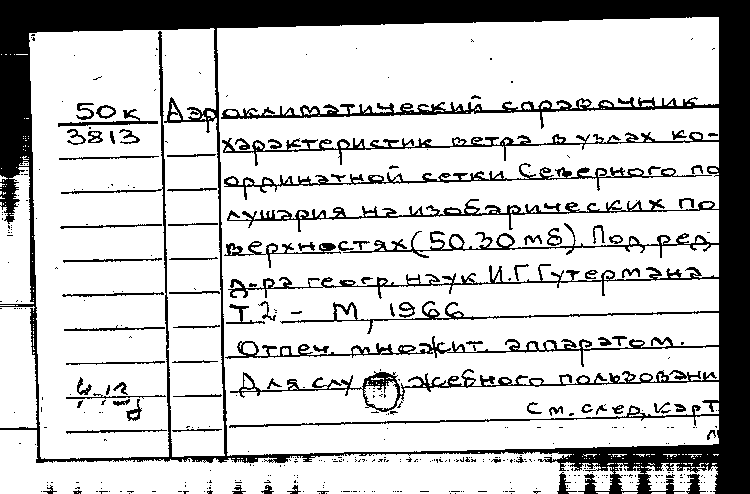 50к Аэроклиматический справочник
3813 характеристик ветра в узлах ко-
ординатной сетки Северного по
лушария на изобарических по
верхностях (50.30 мб). Под ред.
д-ра геогр. наук И.Г. Гутермана.
Т.2 - М, 1966.
Отпеч. множит. аппаратом.
Для служебного пользовани
См. след. карт